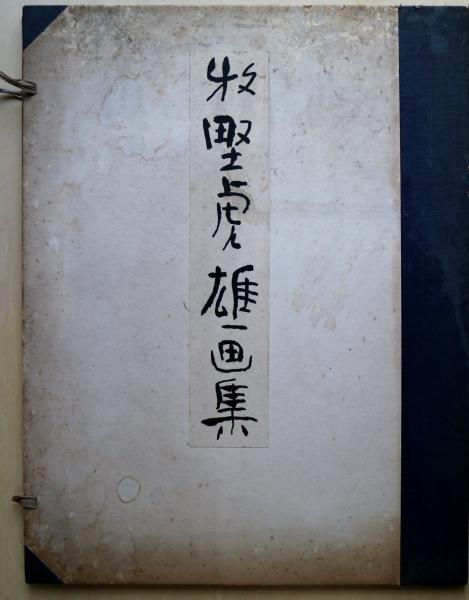 牧野虎雄画集